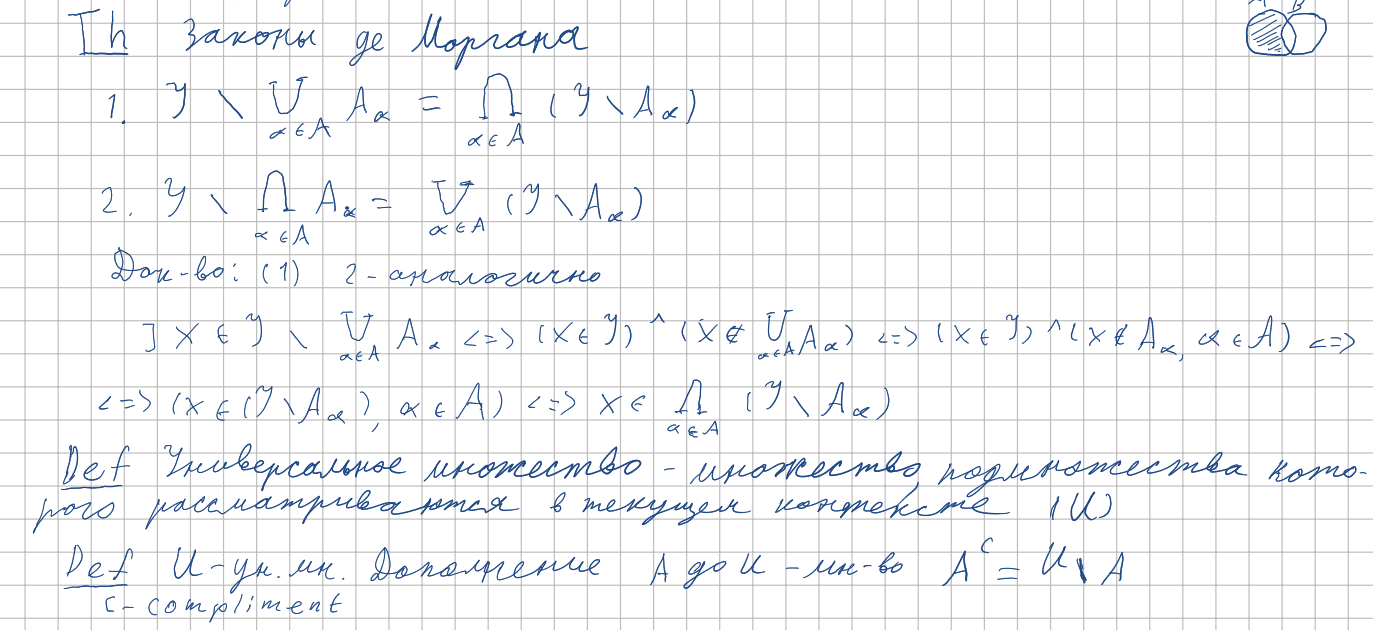 Th Законы де Моргана
1. Y \ ⋃_{α∈A} A_α = ⋂_{α∈A} (Y \ A_α)
2. Y \ ⋂_{α∈A} A_α = ⋃_{α∈A} (Y \ A_α)
Док-во: (1) 2 - аналогично
] x ∈ Y \ ⋃_{α∈A} A_α <=> (x ∈ Y) ^ (x ∉ ⋃_{α∈A} A_α) <=> (x ∈ Y) ^ (x ∉ A_α, α ∈ A) <=>
<=> (x ∈ (Y \ A_α), α ∈ A) <=> x ∈ ⋂_{α∈A} (Y \ A_α)
Def Универсальное множество - множество, подмножества кото-
рого рассматриваются в текущем контексте (U)
Def U - ун. мн. Дополнение A до U - мн-во A^C = U \ A
C - compliment